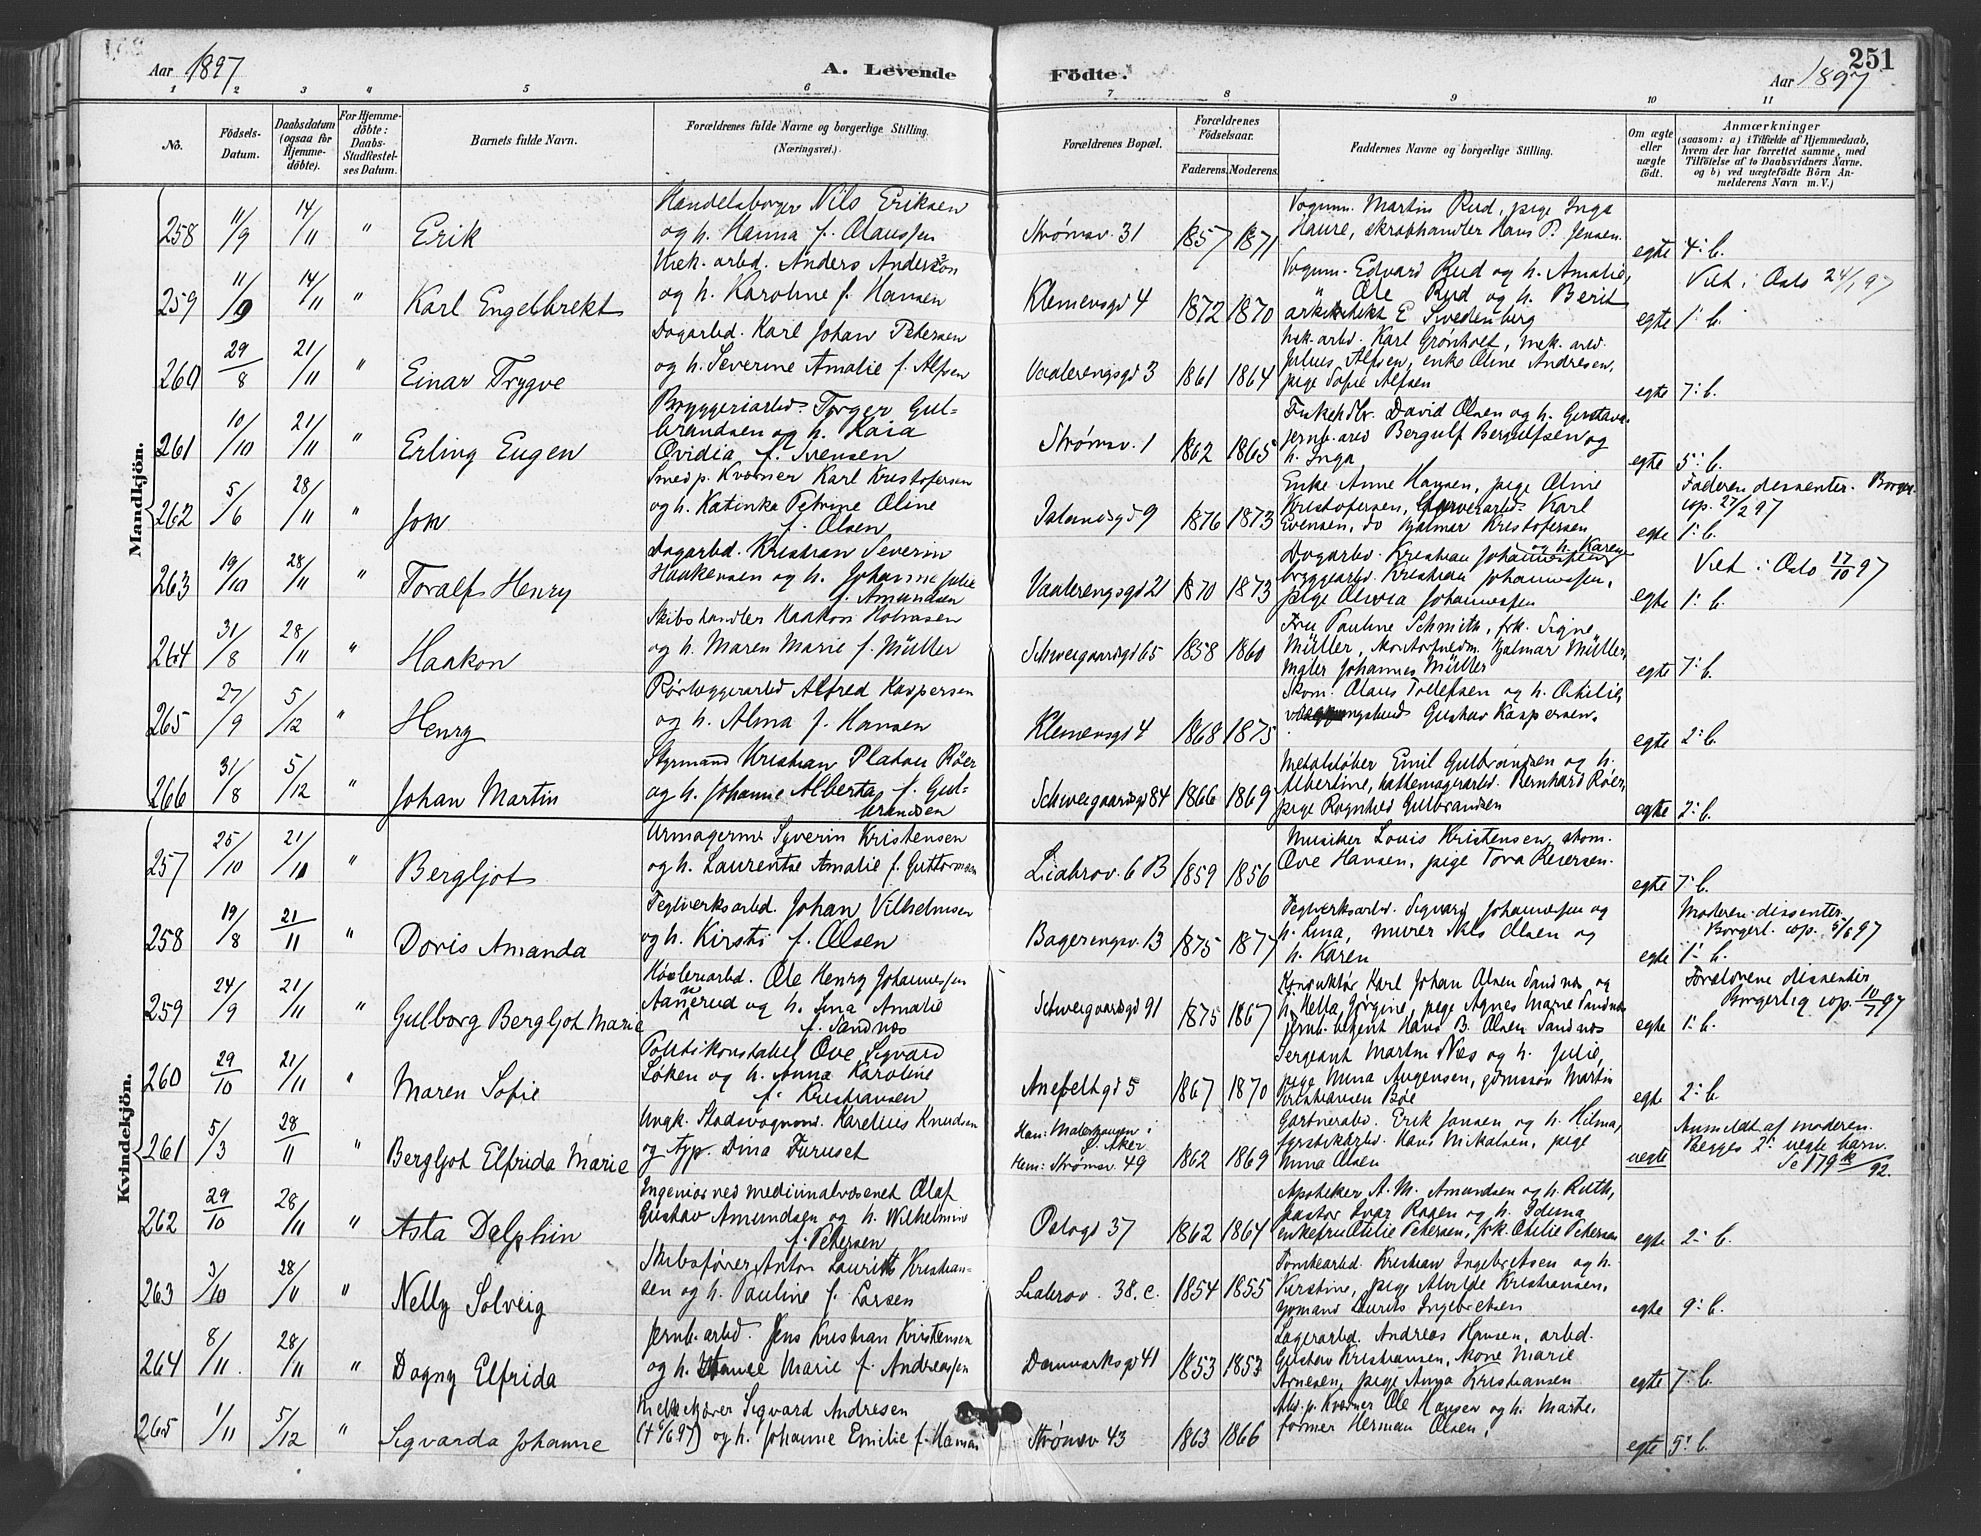 Aar 1897
A. Levende
Födte.
251
Aar 1897
1 2 3 4 5 6 7 8 9 10 11
No.
Födsels-
Datum.
Daabsdatum
(ogsaa for
Hjemme-
döbte).
For Hjemme-
döbte:
Daabs-
Stadfæstel-
ses Datum.
Barnets fulde Navn.
Forældrenes fulde Navne og borgerlige Stilling.
(Næringsvei.)
Forældrenes Bopæl.
Forældrenes
Födselsaar.
Faderens. Moderens.
Faddernes Navne og borgerlige Stilling.
Om ægte
eller
uægte
födt.
Anmærkninger
(saasom: a) i Tilfælde af Hjemmedaab,
hvem der har forrettet samme, med
Tilföielse af to Daabsvidners Navne.
og b) ved uægtefödte Börn An-
melderens Navn m. V.)
Mandkjön.
258 11/9 14/11 " Erik
Handelsborger Nils Eriksen
og h. Hanna f. Olaussen
Strømsv. 31 1857 1871
Vognm. Martin Rud, pige Inga
Haure, skrabhandler Hans P. Jensen
egte 4: b.
259 11/9 14/11 " Karl Engelbrekt
Mek. arbd. Anders Anderson
og h. Karoline f. Hansen
Klemensgd 4 1872 1870
Vognm. Edvard Rud og h. Amalie,
" Ole Rud og h. Berit
arkitekt E Swedenberg
egte 1: b.
Viet i Oslo 24/1 97
260 29/8 21/11 " Einar Trygve
Dagarbd. Karl Johan Petersen
og h. Severine Amalie f. Alfsen
Vaalerengsgd 3 1861 1864
Mek. arbd. Karl Grønholt, mek. arbd.
Julius Alfsen, enke Oline Andresen,
pige Sofie Alfsen
egte 7: b.
261 10/10 21/11 " Erling Eugen
Bryggeriarbd. Torger Gul-
brandsen og h. Kaia
Ovidia f. Svensen
Strømsv. 1 1862 1865
David Olsen og h. Gustava,
jernb. arbd Bergulf Bergulfsen og
h. Inga
egte 5: b.
262 5/6 28/11 " Jon
Smed p. Kværner Karl Kristofersen
og h. Katinka Petrine Oline
f. Olsen
Islandsgd 9 1876 1873
Enke Anne Hansen, pige Oline
Kristofersen, Karl
Evensen, do Hjalmar Kristofersen
egte 1: b.
Faderen dissenter. Borger.
cop. 27/2 97
263 19/10 28/11 " Toralf Henry
Dagarbd. Kristian Severin
Haakensen og h. Johanne Julie
f. Amundsen
Vaalerengsgd 21 1870 1873
Dagarbd. Kristian Johannessen og h. Karen,
bryggearbd. Kristian Johannessen,
pige Olivia Johannessen
egte 1: b.
Viet i Oslo 17/10 97
264 31/8 28/11 " Haakon
Skibshandler Haakon
og h. Maren Marie f. Müller
Schweigaardsgd 65 1858 1860
Fru Pauline Schmith, frk. Signe
Müller, Hjalmar Müller,
maler Johannes Müller
egte 7: b.
265 27/9 5/12 " Henry
Rørlæggerarbd Alfred Kaspersen
og h. Alma f. Hansen
Klemensgd 4 1868 1875
Skom. Olaus Tollefsen og h. Otilie,
Gustav Kaspersen.
egte 2: b.
266 31/8 5/12 " Johan Martin
Styrmand Kristian Platou Röer
og h. Johanne Alberta f. Gul-
brandsen
Schweigaardsgd 84 1866 1869
Metalstøber Emil Gulbrandsen og h.
Albertine, Bernhard Röer,
pige Ragnhild Gulbrandsen
egte 2: b.
Kvindekjön.
257 25/10 21/11 " Bergljot
Urmagerm. Severin Kristensen
og h. Laurentse Amalie f. Guttormsen
Liabrov. 6 B 1859 1856
Musiker Louis Kristensen, skom.
Ove Hansen, pige Tora Reiersen.
egte 7: b.
258 19/8 21/11 " Doris Amanda
Teglverksarbd. Johan Vilhelmsen
og h. Kirsti f. Olsen
Bagerengsv. 13 1875 1877
Teglverksarbd. Sigvard Johannessen og
h. Lina, murer Nils Olsen og
h. Karen
egte 1: b.
Moderen dissenter.
Borgerl. cop. 5/6 97
259 24/9 21/11 " Gulborg Bergljot Marie
Høvleriarbd. Ole Henry Johannessen
Aannerud og h. Lina Amalie
f. Sandnæs
Schweigaardsgd 91 1875 1867
Konduktør Karl Johan Olsen Sandnæs og
h. Hella Jørgine, pige Agnes Marie Sandnæs
jernb. betjent Hans B. Olsen Sandnæs
egte 1: b.
Forældrene dissenter
Borgerlig cop. 10/7 97
260 29/10 21/11 " Maren Sofie
Politikonstabel Ove Sigvard
Løken og h. Anna Karoline
f. Kristiansen
Anefeltgd 5 1867 1870
Sergeant Martin Næs og h. Julie,
pige Mina Augensen, Martin
Kristiansen Bøe
egte 2: b.
261 5/3 28/11 " Bergljot Elfrida Marie
Ungk. Stadsvognmd. Karelius Knudsen
og typ. Dina Furuset
Han: Malerhaugen i
Aker
Hun: Strømsv. 49 1862 1869
Gartnerabd. Erik Jansen og h. Hilma,
fyrstikarbd. Hans Mikalsen, pige
Anna Olsen
uegte
Anmeldt af moderen.
Begges 2: uegte barn.
Se 179 k/92.
262 29/10 28/11 " Asta Delphin
Ingeniør ved medicinalvæsenet Olaf
Gustav Amundsen og h. Wilhelmine
f. Petersen
Oslogd 37 1862 1864
Apotheker A. M. Amundsen og h. Ruth,
pastor Ivar Rogen og h. Idema
enkefru Otilie Petersen, frk. Otilie Petersen
egte 2: b.
263 3/10 28/11 " Nelly Solveig
Skibsfører Anton Laurits Kristian-
sen og h. Pauline f. Larsen
Liabrov. 38. c. 1854 1855
Tomtearbd. Kristian Ingebretsen og h.
Kirstine, pige Alvilde Kristiansen,
sømand Laurits Ingebretsen
egte 9: b.
264 8/11 28/11 " Dagny Elfrida
Jernb. arbd. Jens Kristian Kristensen
og h. Marie f. Andreassen
Danmarksgd 41 1853 1853
Lagerarbd. Andreas Hansen, arbd.
Gustav Kristiansen, kone Marie
Arnesen, pige Anna Kristiansen
egte 7: b.
265 1/11 5/12 " Sigvarda Johanne
Sigvard Andresen
(† 6/6 97) og h. Johanne Emilie f. Hansen
Strømsv 43 1863 1866
Arb. p. Kværner Ole Hansen og h. Marte,
former Herman Olsen,
egte 5: b.